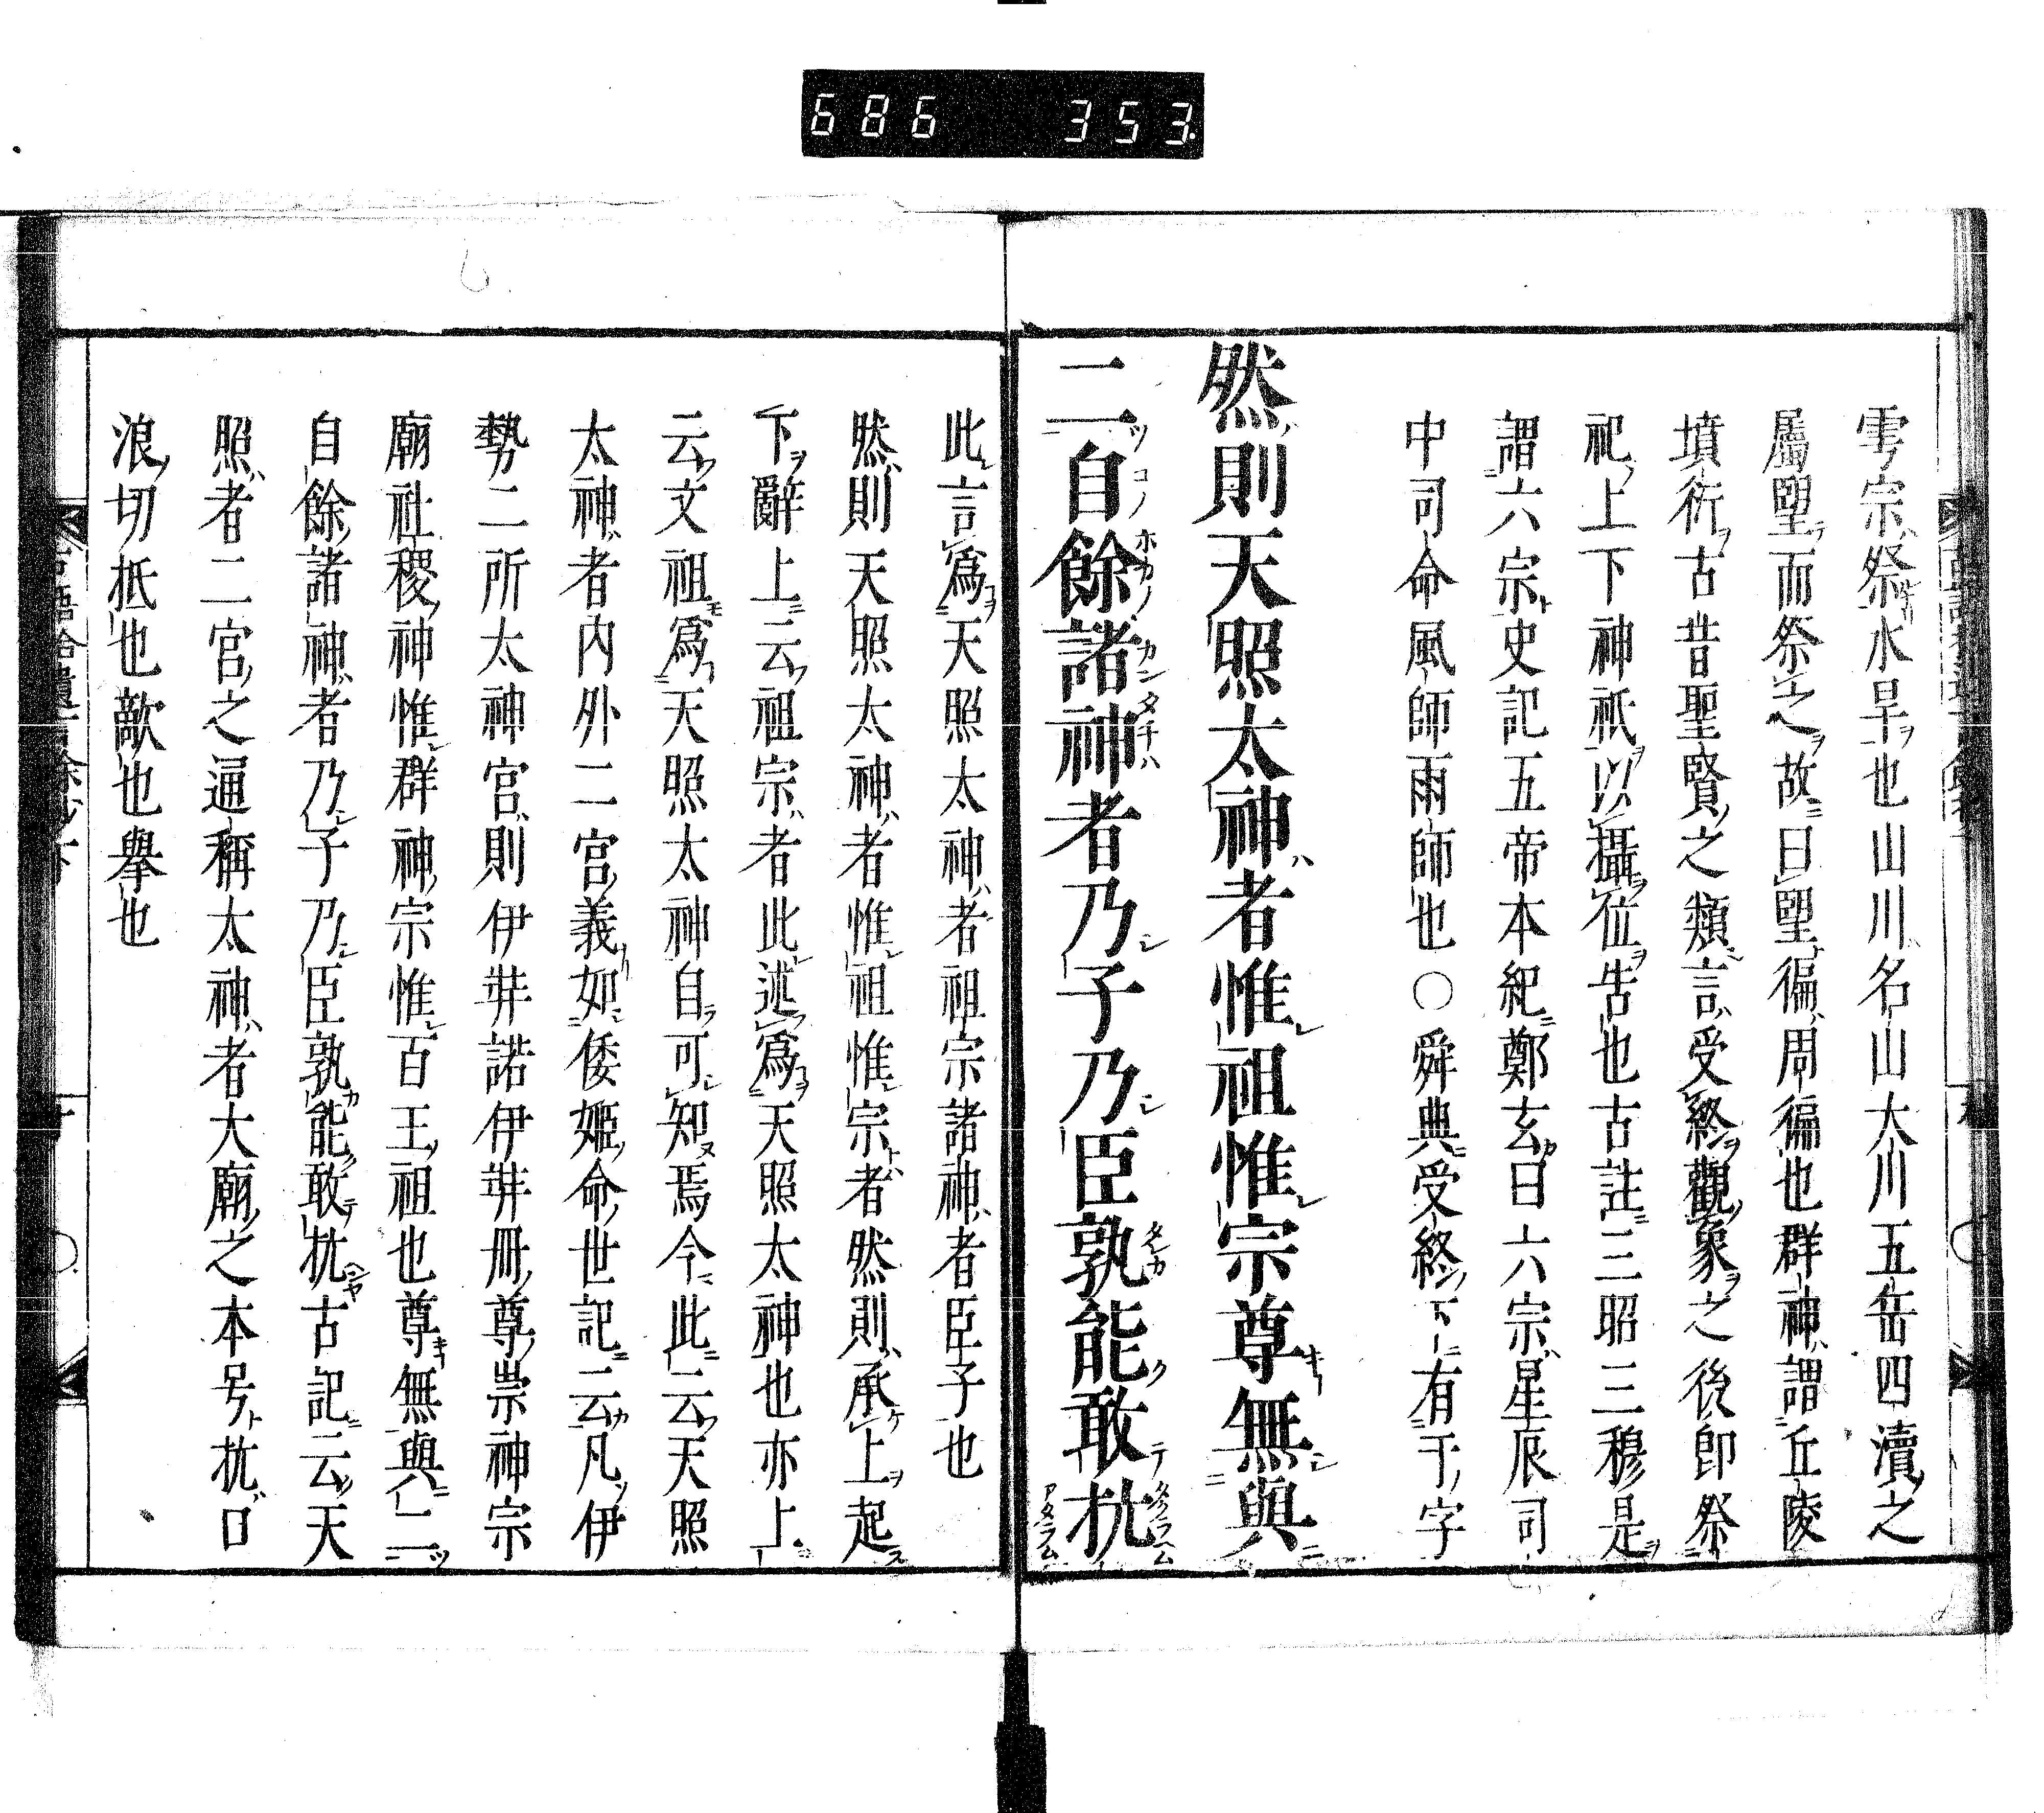 686 353
雩宗祭水旱也山川名山大川五岳四瀆之
屬望而祭之故曰望徧周徧也群神謂丘陵
墳衍古昔聖賢之類言受終觀象之後卽祭
祀上下神祇以攝位告也古註三昭三穆是
謂六宗史記五帝本紀鄭玄曰六宗星辰司
中司命風師雨師也○舜典受終下有于字
然則天照太神者惟祖惟宗尊無與
二自餘諸神者乃子乃臣孰能敢抗
此言爲天照太神者祖宗諸神者臣子也
然則天照太神者惟祖惟宗者然則承上起
下辭上云祖宗者此述爲天照太神也亦上
云文祖爲天照太神自可知焉今此云天照
太神者內外二宮義如倭姬命世記云凡伊
勢二所太神宮則伊弉諾伊弉冊尊崇神宗
廟社稷神惟群神宗惟百王祖也尊無與二
自餘諸神者乃子乃臣孰能敢抗古記云天
照者二宮之通稱太神者大廟之本号抗口
浪切抵也敵也擧也